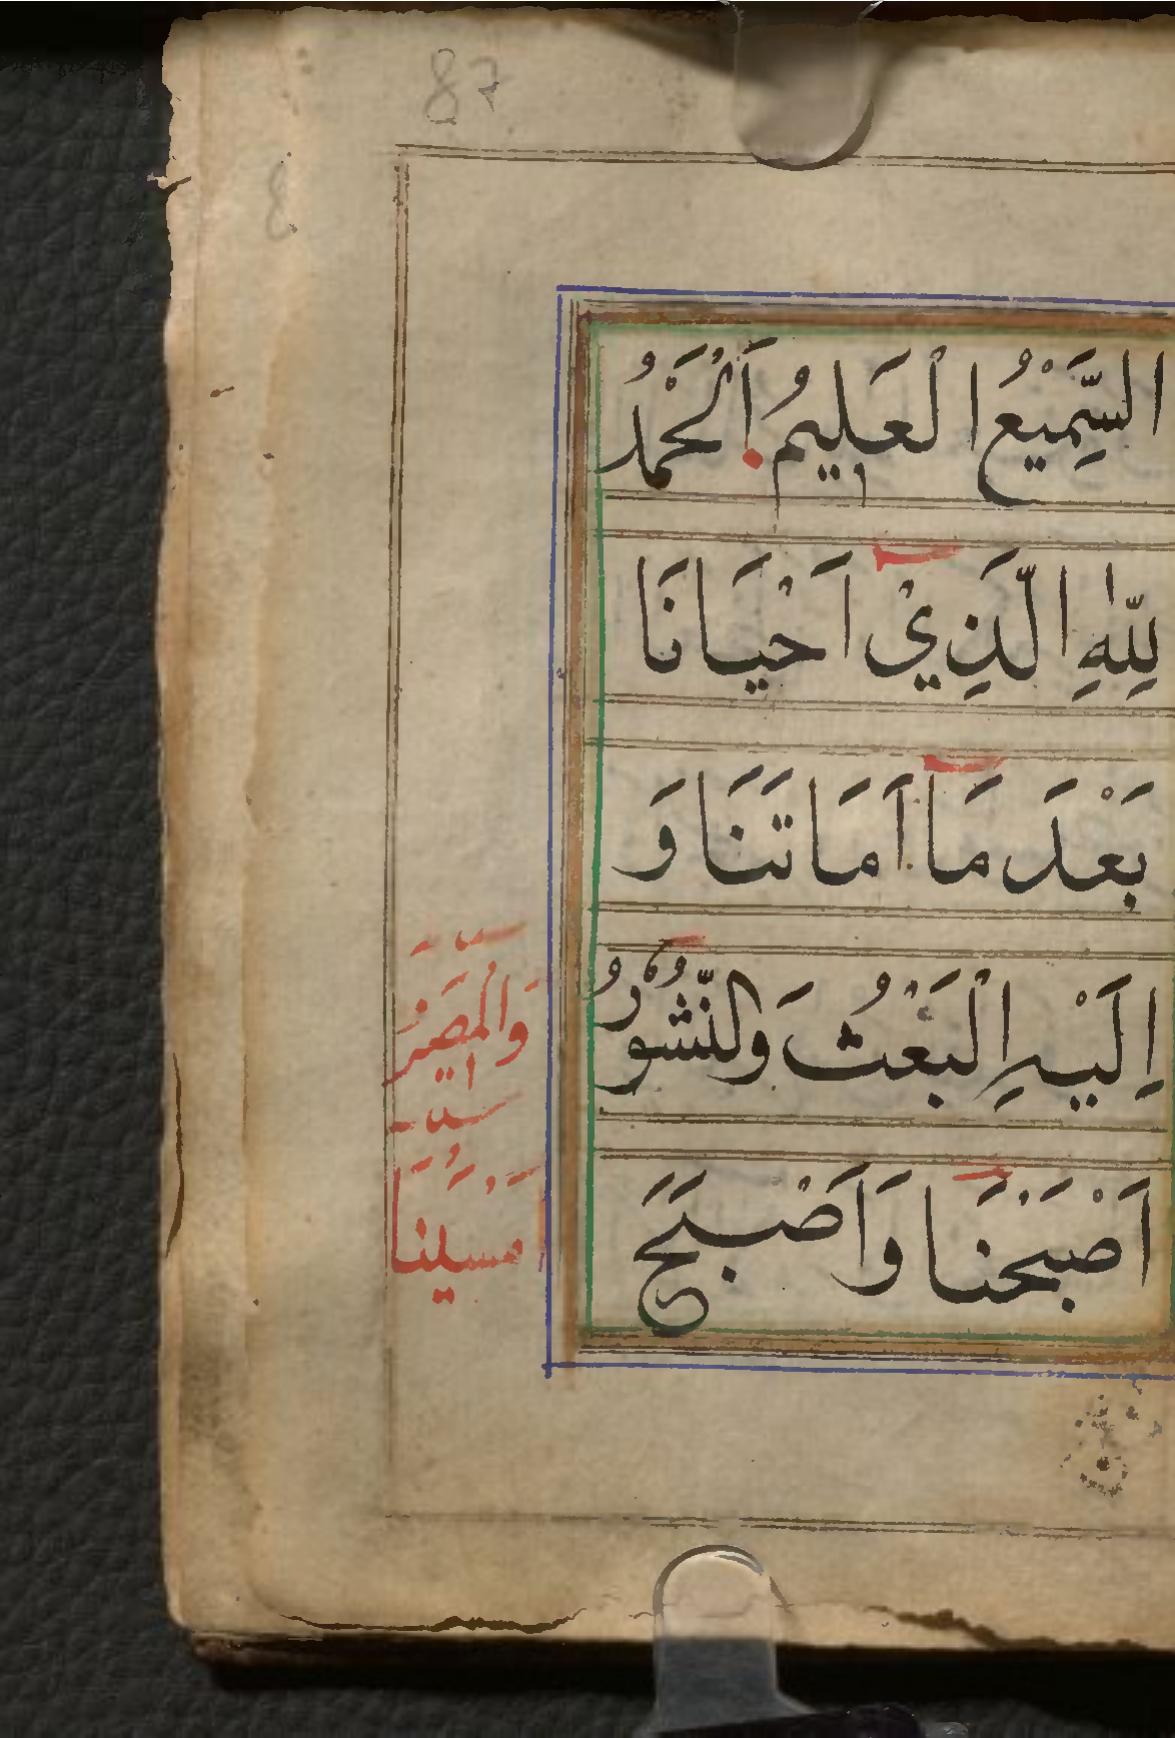 87
8
السَّمِيْعُ الْعَلِيمُ اَلْحَمْدُ
لِلّٰهِ الَّذِيْ اَحْيَانَا
بَعْدَ مَا اَمَاتَنَا وَ
اِلَيْهِ الْبَعْثُ وَالنُّشُوْرُ
وَالْمَصِيْرُ
اَصْبَحْنَا وَاَصْبَحَ
اَمْسَيْنَا